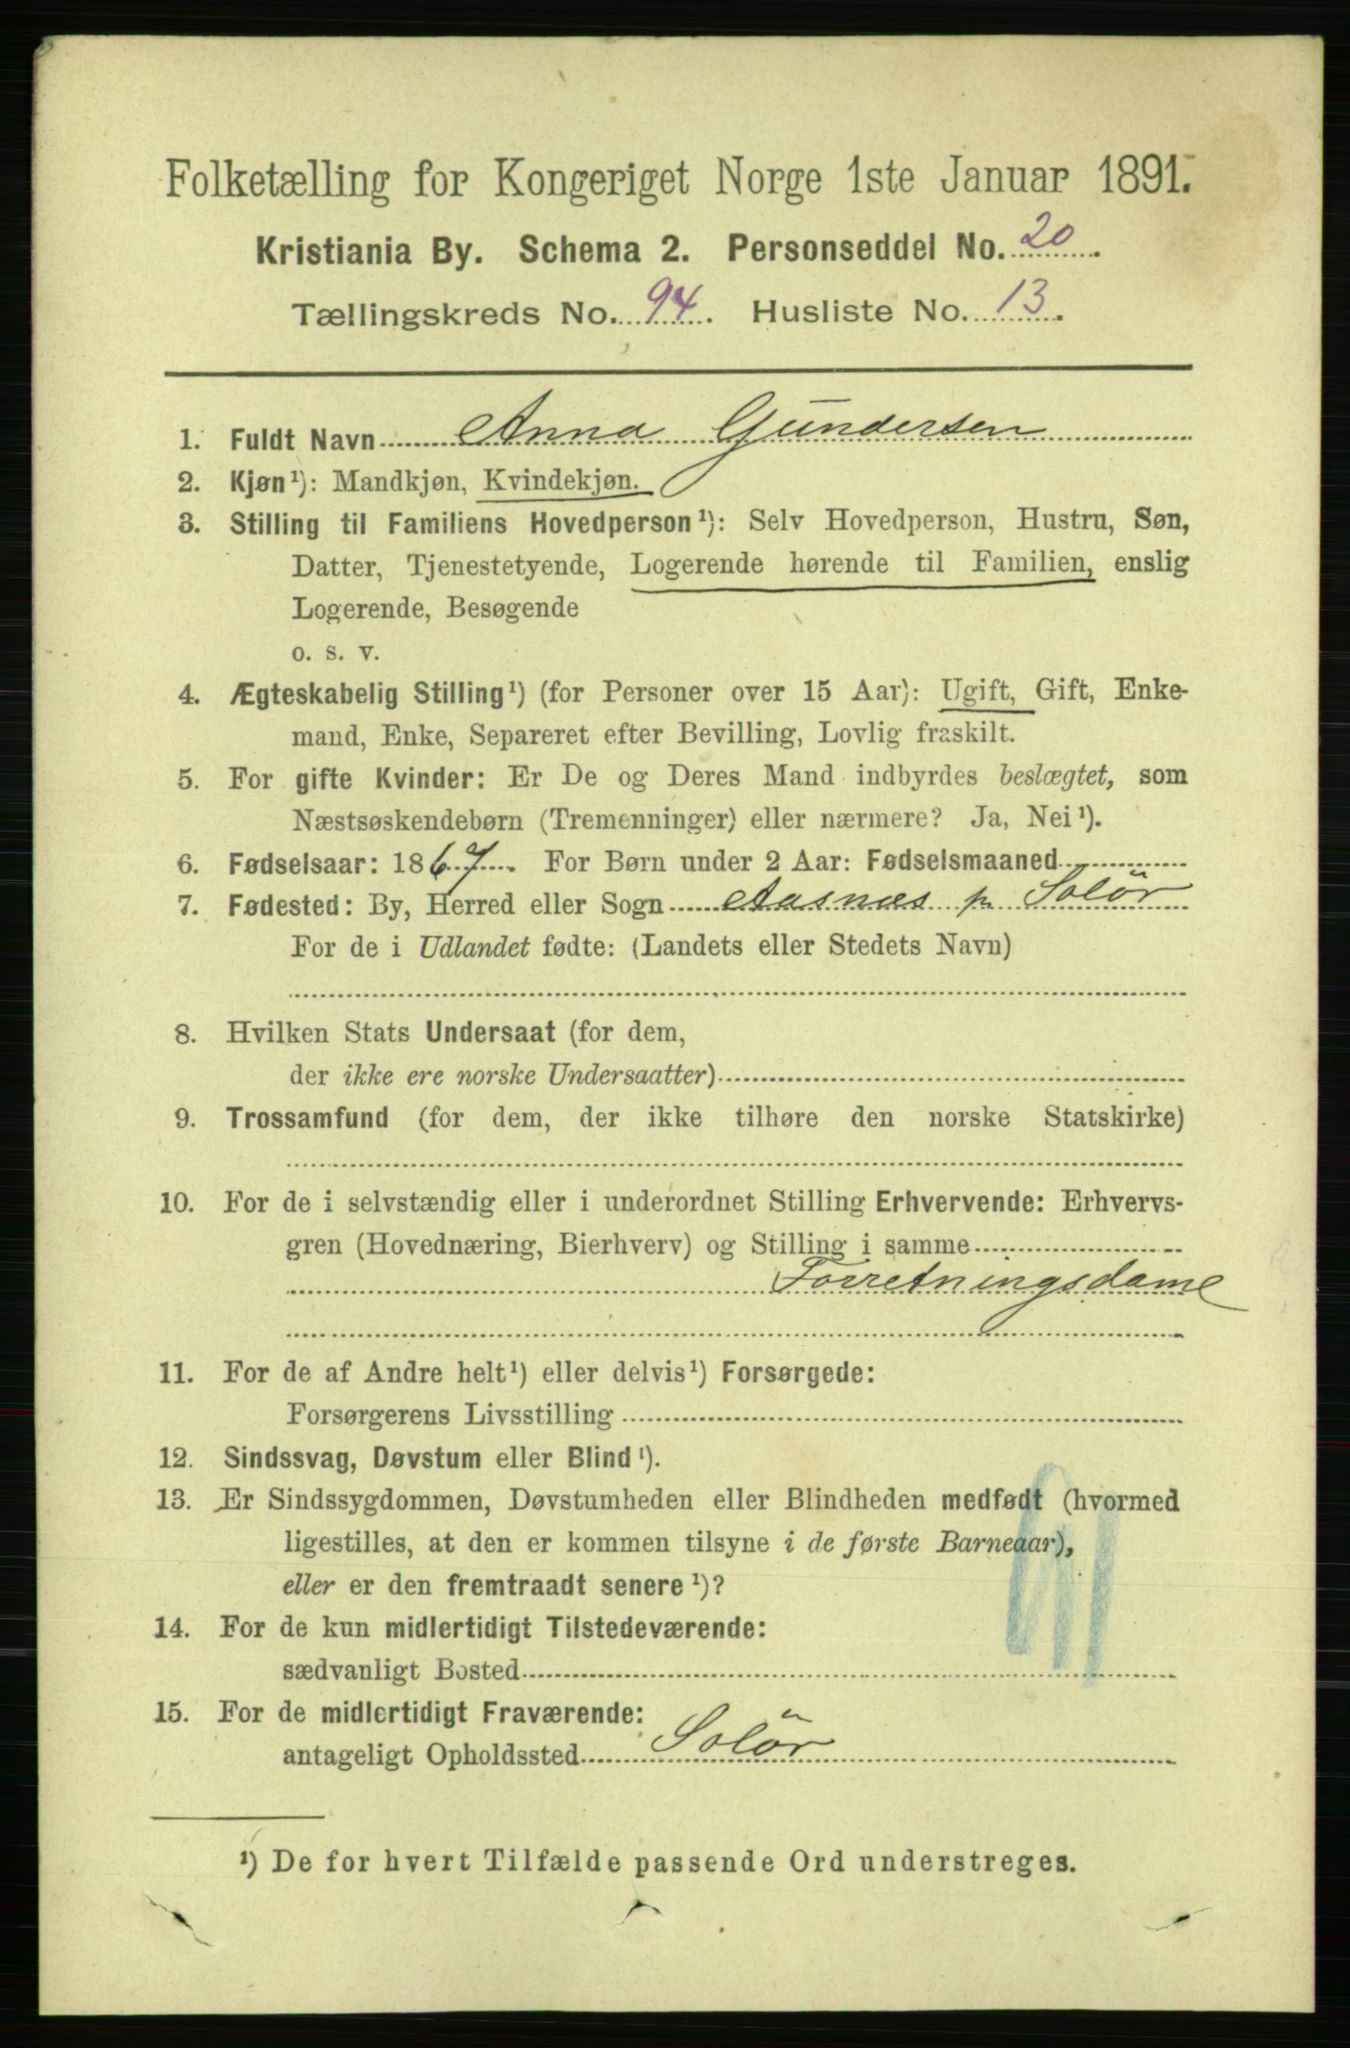 Folketælling for Kongeriget Norge 1ste Januar 1891.
Kristiania By. Schema 2. Personseddel No. 20.
Tællingskreds No. 94. Husliste No. 13.
1. Fuldt Navn Anna Gundersen
2. Kjøn¹): Mandkjøn, Kvindekjøn.
3. Stilling til Familiens Hovedperson¹): Selv Hovedperson, Hustru, Søn,
Datter, Tjenestetyende, Logerende hørende til Familien, enslig
Logerende, Besøgende
o. s. v.
4. Ægteskabelig Stilling¹) (for Personer over 15 Aar): Ugift, Gift, Enke-
mand, Enke, Separeret efter Bevilling, Lovlig fraskilt.
5. For gifte Kvinder: Er De og Deres Mand indbyrdes beslægtet, som
Næstsøskendebørn (Tremenninger) eller nærmere? Ja, Nei¹).
6. Fødselsaar: 1867. For Børn under 2 Aar: Fødselsmaaned
7. Fødested: By, Herred eller Sogn Aasnæs pr Solör
For de i Udlandet fødte: (Landets eller Stedets Navn)
8. Hvilken Stats Undersaat (for dem,
der ikke ere norske Undersaatter)
9. Trossamfund (for dem, der ikke tilhøre den norske Statskirke)
10. For de i selvstændig eller i underordnet Stilling Erhvervende: Erhvervs-
gren (Hovednæring, Bierhverv) og Stilling i samme
Forretningsdame
11. For de af Andre helt¹) eller delvis¹) Forsørgede:
Forsørgerens Livsstilling
12. Sindssvag, Døvstum eller Blind¹).
13. Er Sindssygdommen, Døvstumheden eller Blindheden medfødt (hvormed
ligestilles, at den er kommen tilsyne i de første Barneaar),
eller er den fremtraadt senere¹)?
14. For de kun midlertidigt Tilstedeværende:
sædvanligt Bosted
15. For de midlertidigt Fraværende:
antageligt Opholdssted Solör
¹) De for hvert Tilfælde passende Ord understreges.